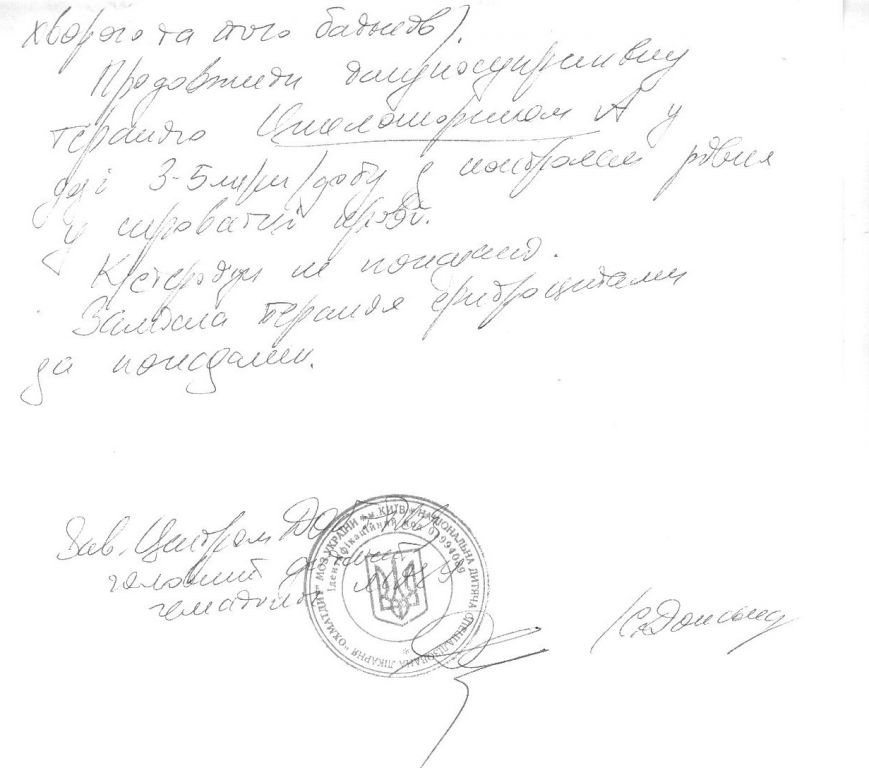 хворого та його батьків).
Продовжити імуносупресивну
терапію Циклоспорином А у
дозі 3-5 мг/кг/добу з контролем рівня
у сироватці крові.
К/стероїди не показано.
терапія еритроцитами
за показами.
Зав. Центром
головний дитячий
гематолог МОЗ У
/С. Донська/
"ОХМАТДИТ" МОЗ УКРАЇНИ * м. КИЇВ * НАЦІОНАЛЬНА ДИТЯЧА СПЕЦІАЛІЗОВАНА ЛІКАРНЯ
Ідентифікаційний код